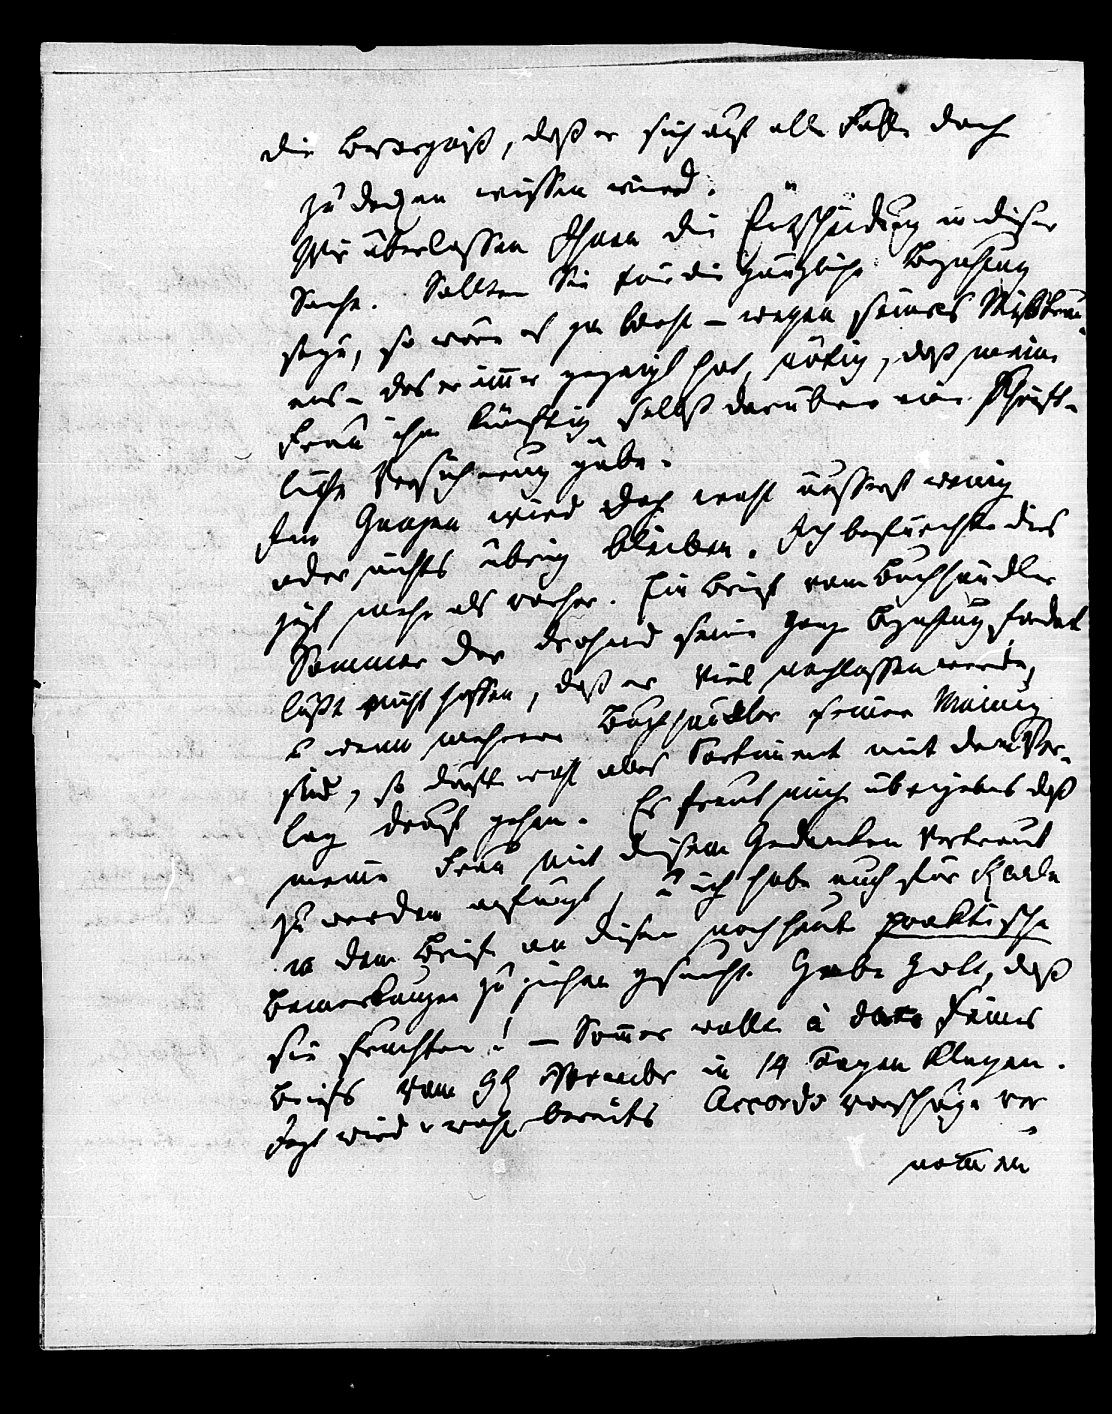 die Besorgniß, daß er sich auf alle Fälle doch
zu decken wissen wird.
Wir überlassen Ihnen die Entscheidung in dieser
Sache. Sollten Sie für die gänzliche Bezahlung
seyn, so wäre es ja wohl – wegen seines Mißtrau-
ens – das er immer gezeigt hat, nötig, daß meine
Frau ihm künftig selbst darüber eine schrift-
liche Versicherung gäbe.
Im Ganzen wird doch wohl äusserst wenig
oder nichts übrig bleiben. Ich befürchte dies
jezt mehr als vorher. Ein Brief vom Buchhändler
Sommer der drohend seine ganze Bezahlung fodert
läßt nicht hoffen, daß er viel nachlassen werde,
u wenn mehrere Buchhändler seiner Meinung
sind, so dürfte wohl alles Sortiment mit dem Ver-
lag drauf gehen. Es freut mich übrigens daß
meine Frau mit diesem Gedanken vertraut
zu werden anfängt, u ich habe auch für
in dem Briefe an diesen noch heute praktische
Bemerkungen zu ziehen gesucht. Gebe Gott, daß
sie fruchten! – Sommer wollte à dato seines
Briefs vom 9t November in 14 Tagen klagen.
Jezt wird er wohl bereits Accordsvorschläge ver-
nommen